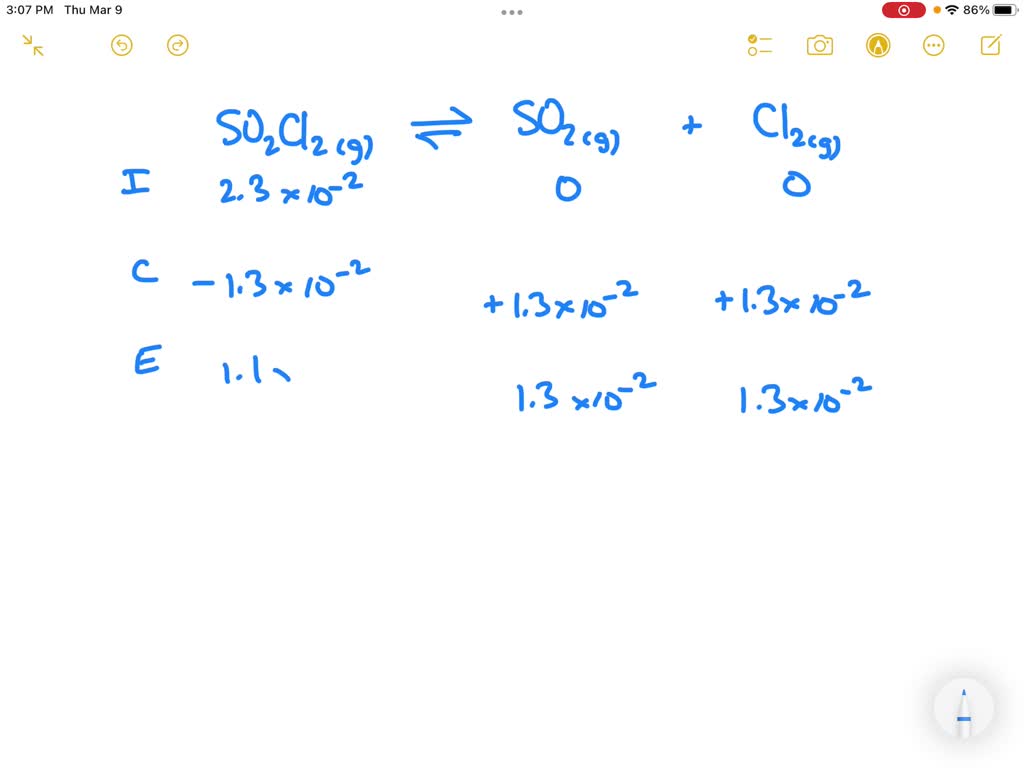 3:07 PM Thu Mar 9 86%
SO₂Cl₂(g) ⇌ SO₂(g) + Cl₂(g)
I 2.3 × 10⁻² 0 0
C - 1.3 × 10⁻² + 1.3 × 10⁻² + 1.3 × 10⁻²
E 1.1 1.3 × 10⁻² 1.3 × 10⁻²